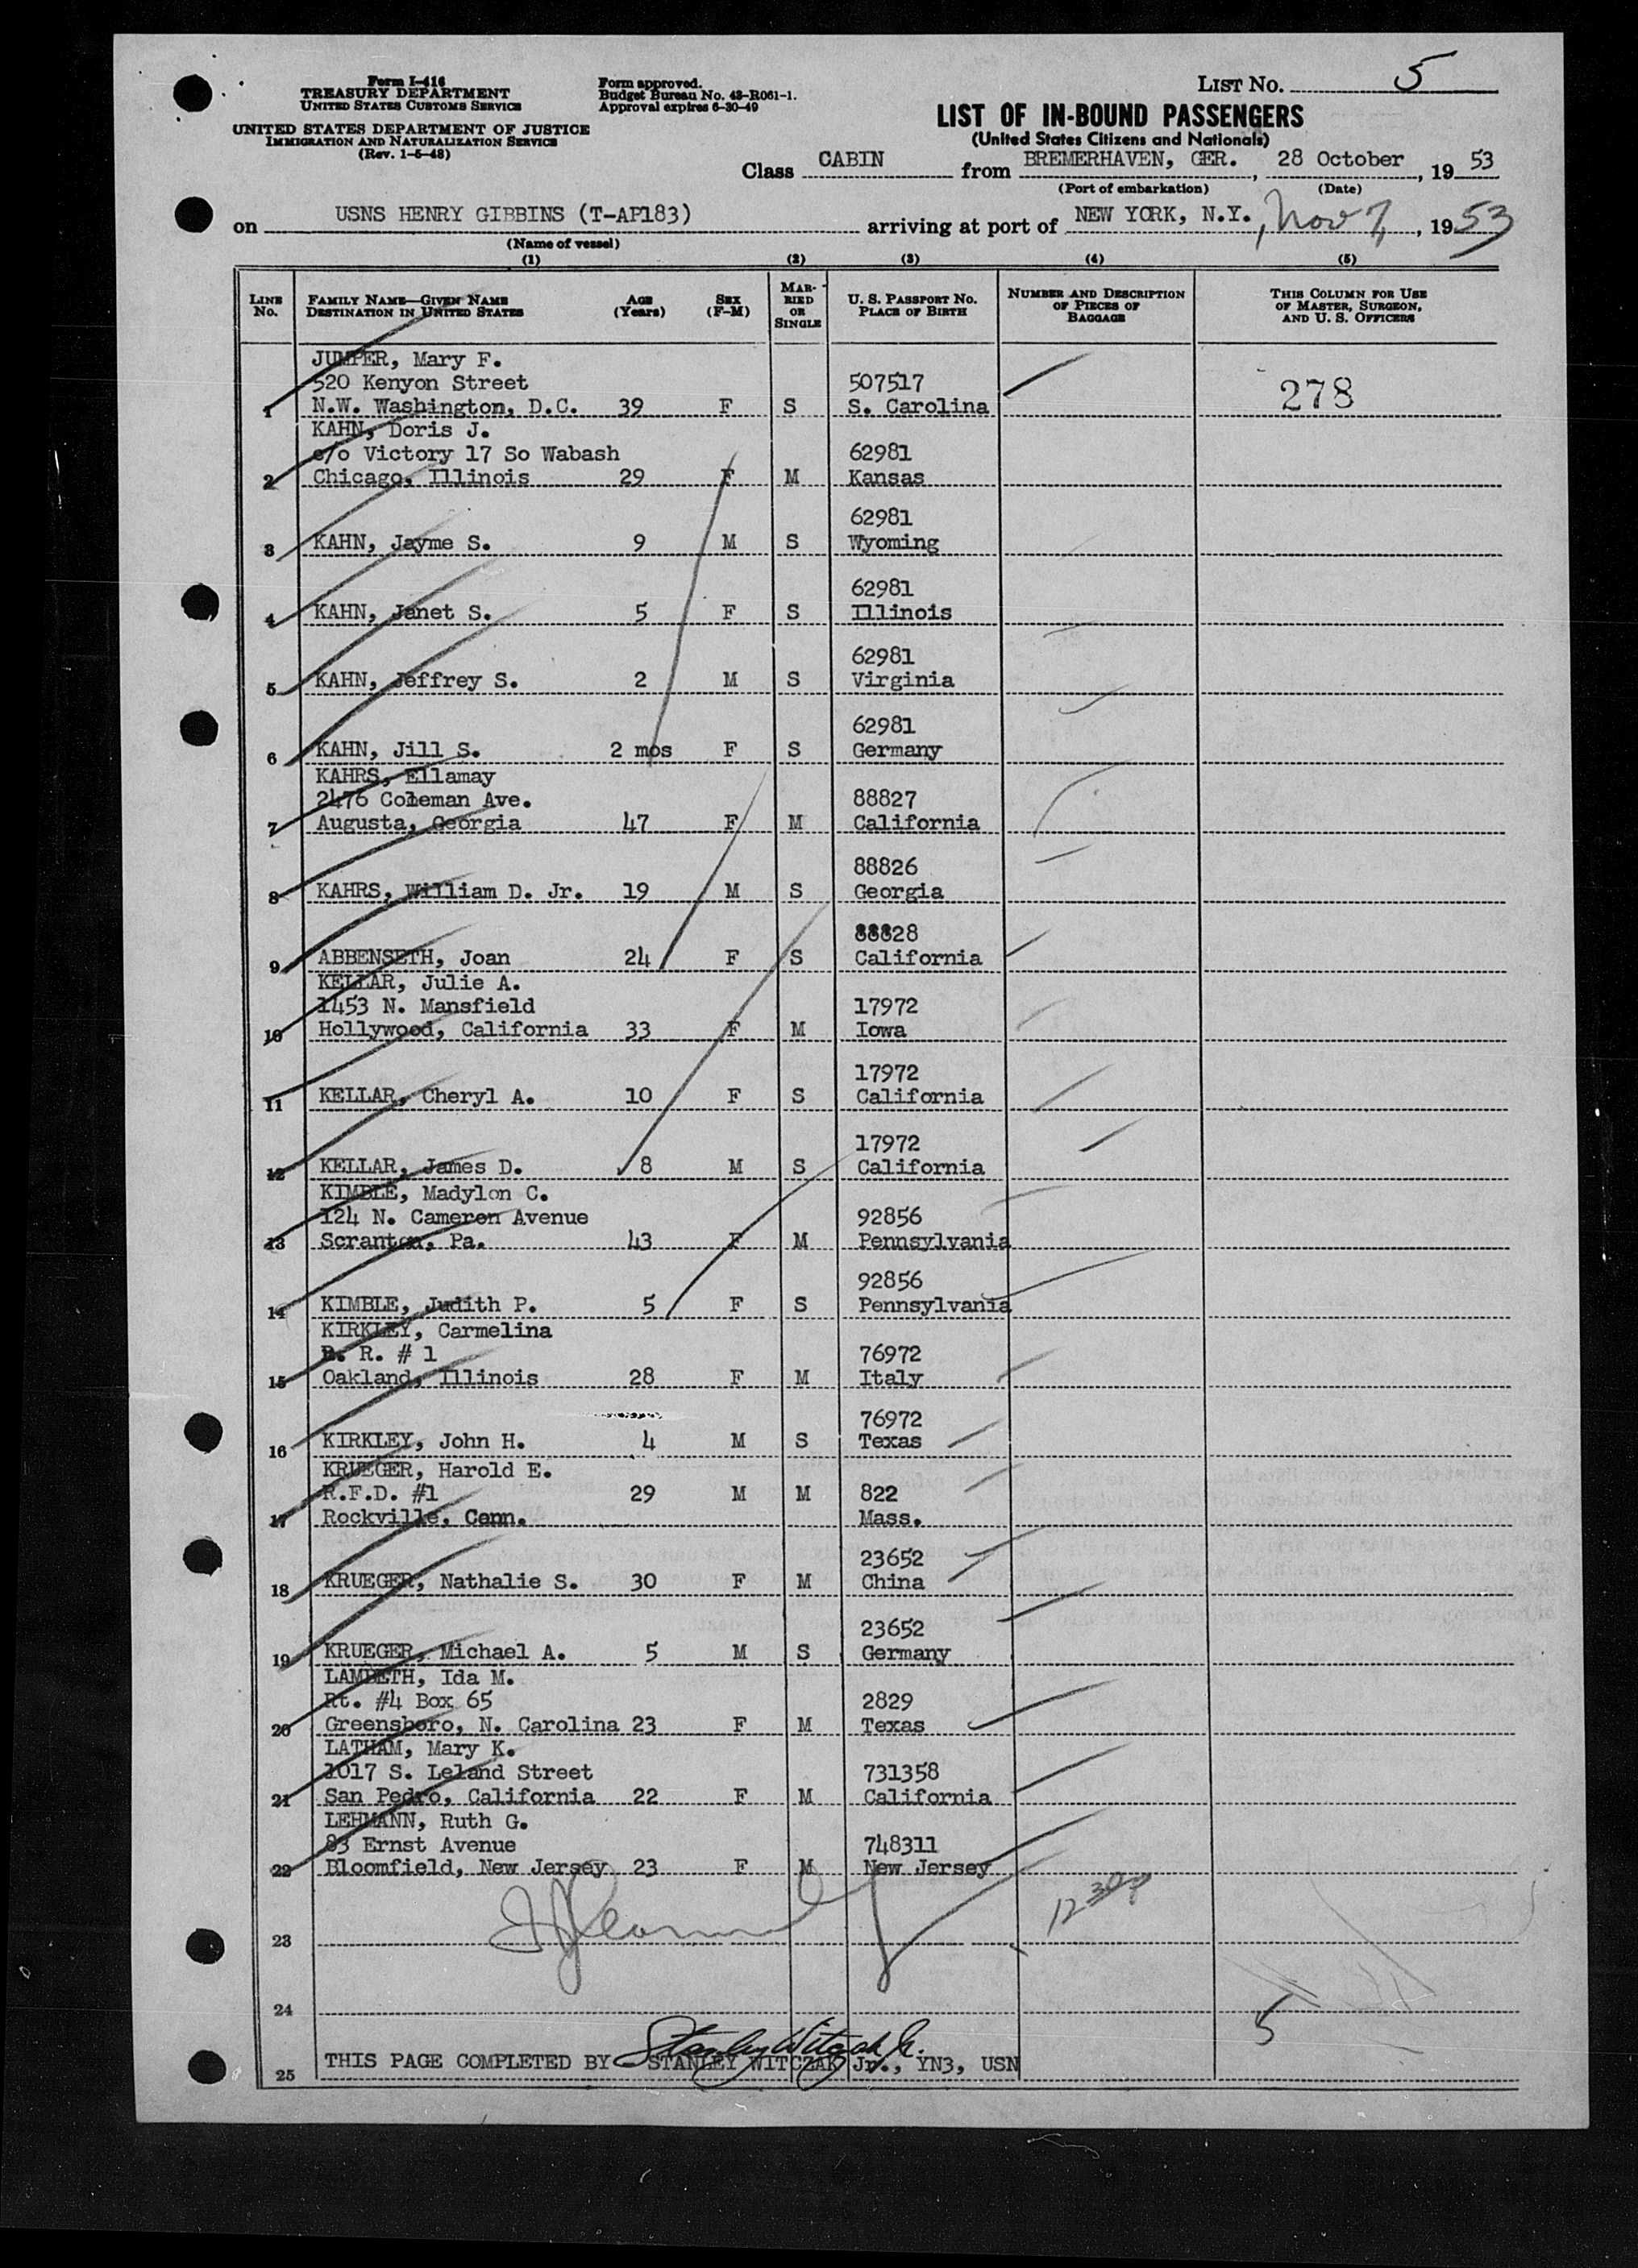 Form I-416
TREASURY DEPARTMENT
UNITED STATES CUSTOMS SERVICE
UNITED STATES DEPARTMENT OF JUSTICE
IMMIGRATION AND NATURALIZATION SERVICE
(Rev. 1-5-48)
Form approved.
Budget Bureau No. 43-R061-1.
Approval expires 6-30-49
LIST NO. 5
LIST OF IN-BOUND PASSENGERS
(United States Citizens and Nationals)
Class CABIN from BREMERHAVEN, GER. , 28 October , 19 53
(Port of embarkation) (Date)
on USNS HENRY GIBBINS (T-AP183) arriving at port of NEW YORK, N.Y. , Nov 7, , 19 53
(Name of vessel)
(1) (2) (3) (4) (5)
LINE NO. FAMILY NAME—GIVEN NAME DESTINATION IN UNITED STATES AGE (Years) SEX (F-M) MARRIED OR SINGLE U. S. PASSPORT NO. PLACE OF BIRTH NUMBER AND DESCRIPTION OF PIECES OF BAGGAGE THIS COLUMN FOR USE OF MASTER, SURGEON, AND U. S. OFFICERS
JUMPER, Mary F.
520 Kenyon Street 507517
1 N.W. Washington, D.C. 39 F S S. Carolina 278
KAHN, Doris J.
c/o Victory 17 So Wabash 62981
2 Chicago, Illinois 29 F M Kansas
62981
3 KAHN, Jayme S. 9 M S Wyoming
62981
4 KAHN, Janet S. 5 F S Illinois
62981
5 KAHN, Jeffrey S. 2 M S Virginia
62981
6 KAHN, Jill S. 2 mos F S Germany
KAHRS, Ellamay
2476 Coleman Ave. 88827
7 Augusta, Georgia 47 F M California
88826
8 KAHRS, William D. Jr. 19 M S Georgia
88828
9 ABBENSETH, Joan 24 F S California
KELLAR, Julie A.
1453 N. Mansfield 17972
10 Hollywood, California 33 F M Iowa
17972
11 KELLAR, Cheryl A. 10 F S California
17972
12 KELLAR, James D. 8 M S California
KIMBLE, Madylon C.
124 N. Cameron Avenue 92856
13 Scranton, Pa. 43 F M Pennsylvania
92856
14 KIMBLE, Judith P. 5 F S Pennsylvania
KIRKLEY, Carmelina
R. R. # 1 76972
15 Oakland, Illinois 28 F M Italy
76972
16 KIRKLEY, John H. 4 M S Texas
KRUEGER, Harold E.
R.F.D. #1 29 M M 822
17 Rockville, Conn. Mass.
23652
18 KRUEGER, Nathalie S. 30 F M China
23652
19 KRUEGER, Michael A. 5 M S Germany
LAMBETH, Ida M.
Rt. #4 Box 65 2829
20 Greensboro, N. Carolina 23 F M Texas
LATHAM, Mary K.
1017 S. Leland Street 731358
21 San Pedro, California 22 F M California
LEHMANN, Ruth G.
83 Ernst Avenue 748311
22 Bloomfield, New Jersey 23 F M New Jersey
23
24
5
Stanley Witczak Jr.
25 THIS PAGE COMPLETED BY STANLEY WITCZAK Jr., YN3, USN